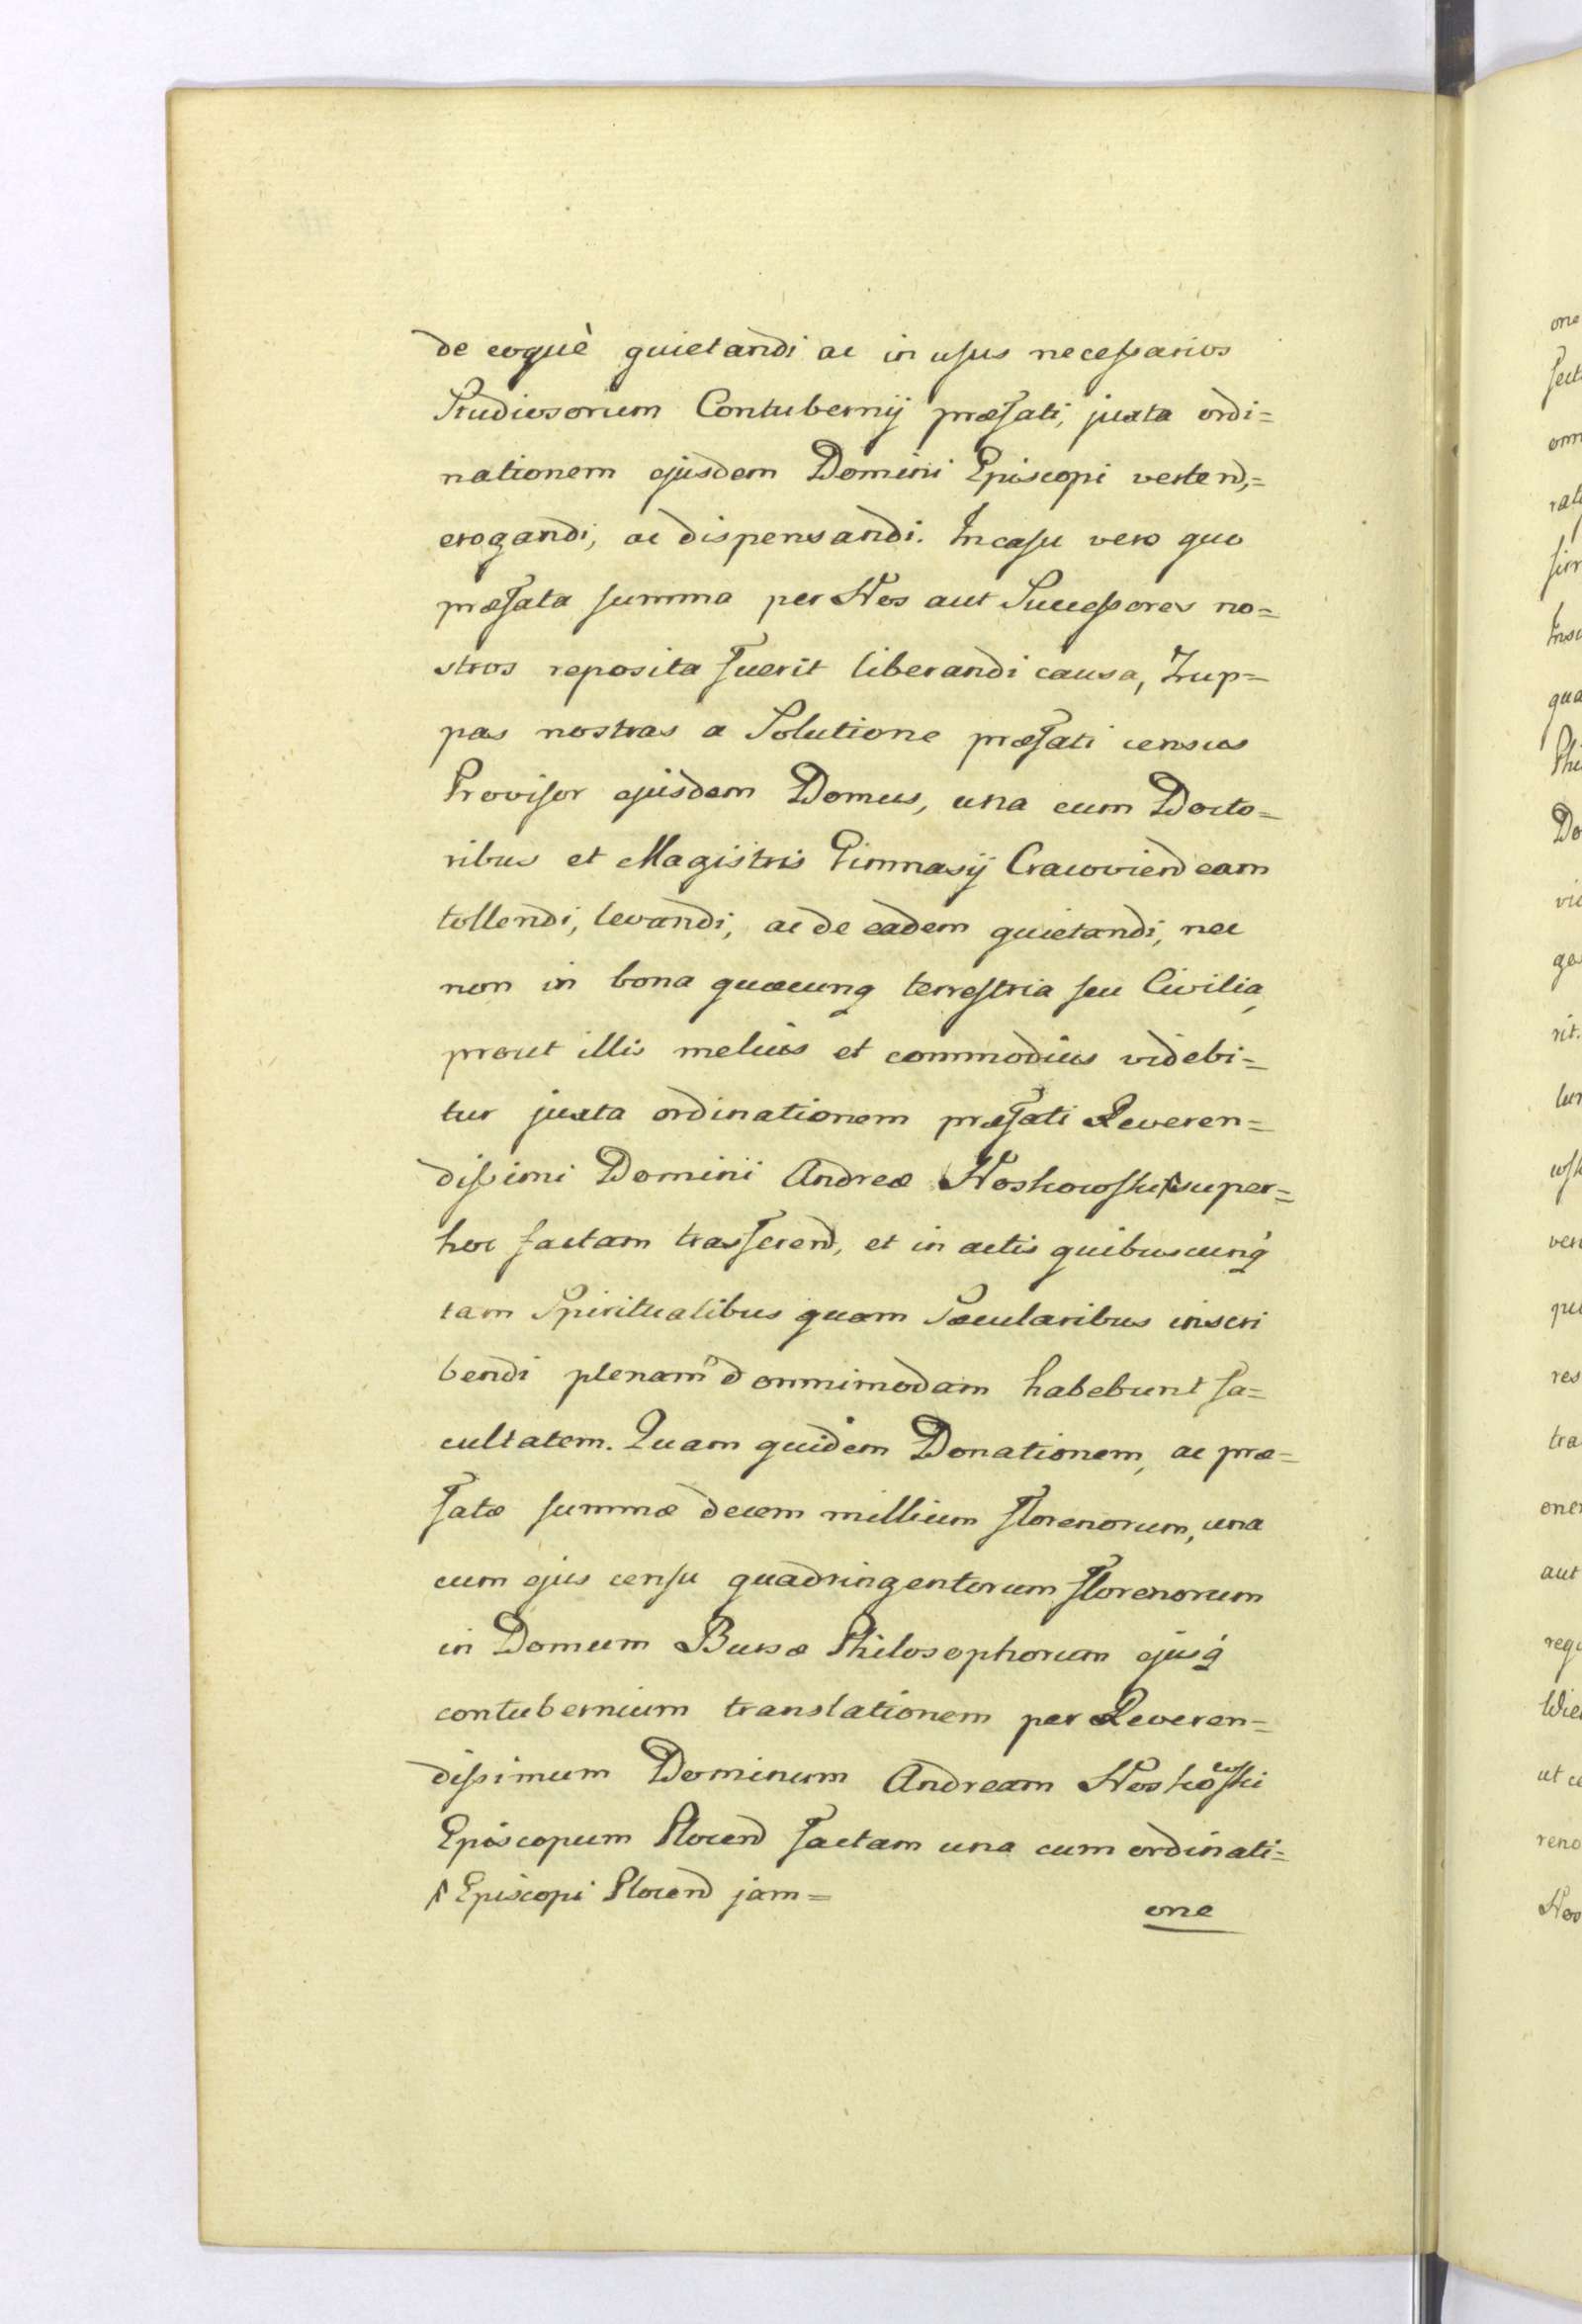 de eoquè quietandi ac in usus necessarios
Studiosorum Contubernij præfati, juxta ordi=
nationem ejusdem Domini Episcopi vertend,=
erogandi, ac dispensandi. Incasu vero quo
præfata summa per Nos aut Successores no=
stros reposita fuerit liberandi causa, Zup=
pas nostras a Solutione præfati census
Provisor ejusdem Domus, una cum Docto=
ribus et Magistris Gimnasij Cracoviend eam
tollendi, levandi, ac de eadem quietandi, nec
non in bona quæcunq terrestria seu Civilia,
prout illis melius et commodius videbi=
tur juxta ordinationem præfati Reveren=
dissimi Domini Andreæ Noskowski super=
hoc factam trasferend, et in actis quibuscunq
tam Spiritualibus quam Sæcularibus inscri
bendi plenam d omnimodam habebunt fa=
cultatem. Quam quidem Donationem, ac præ=
fatæ summæ decem millium florenorum, una
cum ejus censu quadringentorum florenorum
in Domum Bursæ Philosophorum ejusq
contubernium translationem per Reveren=
dissimum Dominum Andream Noskowski
Episcopum Plocend factam una cum ordinati=
Episcopi Plocend jam=
one